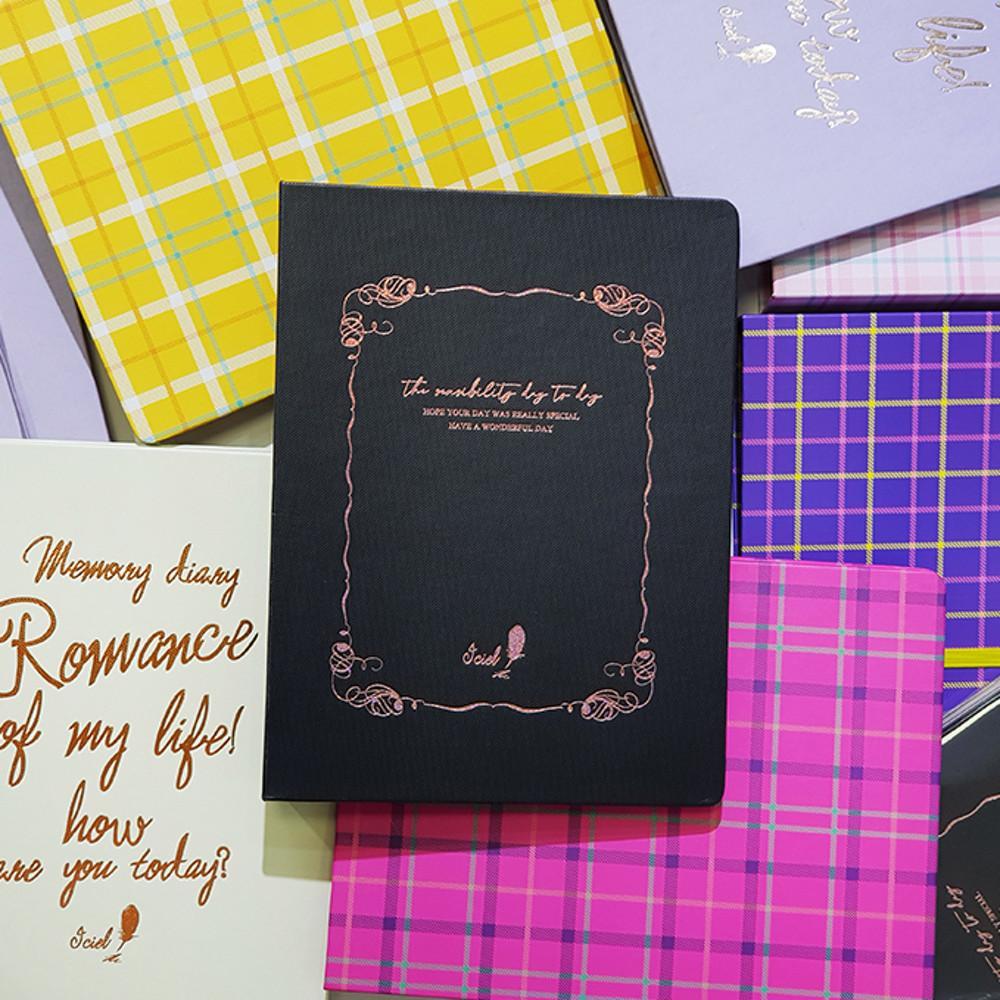 the sensibility day to day
HOPE YOUR DAY WAS REALLY SPECIAL
HAVE A WONDERFUL DAY
Iciel
Memory diary
Romance
of my life!
how
are you today?
Iciel
life!
how
today?
Iciel
day to day
SPECIAL